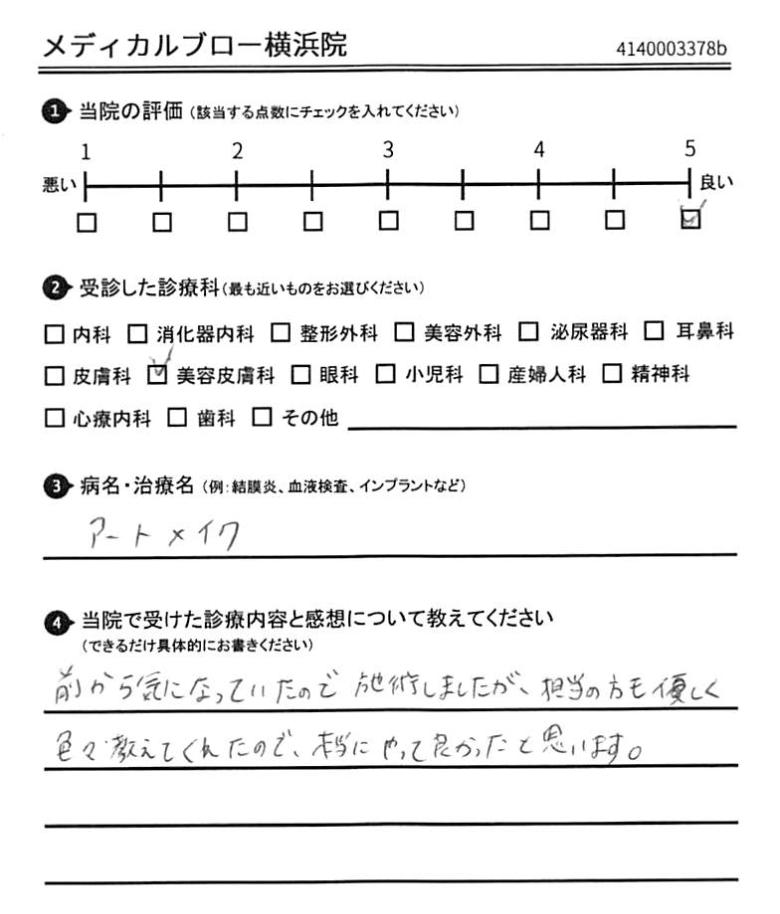 メディカルブロー横浜院 4140003378b
1 当院の評価（該当する点数にチェックを入れてください）
1 2 3 4 5
悪い 良い
2 受診した診療科（最も近いものをお選びください）
内科 消化器内科 整形外科 美容外科 泌尿器科 耳鼻科
皮膚科 美容皮膚科 眼科 小児科 産婦人科 精神科
心療内科 歯科 その他
3 病名・治療名（例：結膜炎、血液検査、インプラントなど）
アートメイク
4 当院で受けた診療内容と感想について教えてください
（できるだけ具体的にお書きください）
前から気になっていたので施術しましたが、担当の方も優しく
色々教えてくれたので、本当にやって良かったと思います。